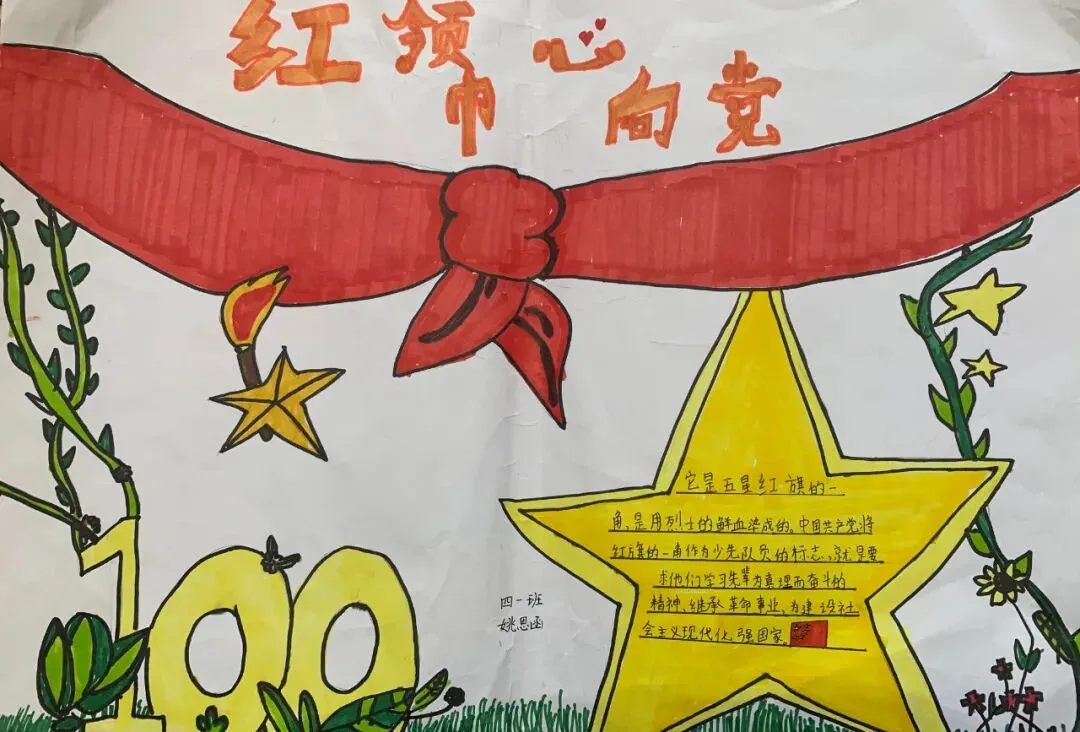 红领巾心向党
它是五星红旗的一
角,是用烈士的鲜血染成的。中国共产党将
红旗的一角作为少先队员的标志、就是要
求他们学习先辈为真理而奋斗的
精神,继承革命事业,为建设社
会主义现代化强国家
四一班
姚思函
100